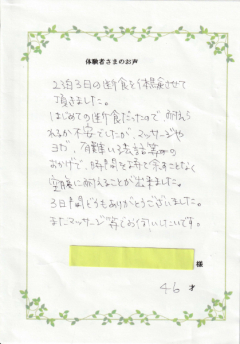 体験者さまのお声
2泊3日の断食を体験させて
頂きました。
はじめての断食だったので、耐えら
れるか不安でしたが、マッサージや
ヨガ、有難い法話等の
おかげで、時間を持て余すことなく
空腹に耐えることが出来ました。
3日間どうもありがとうございました。
またマッサージ等でお伺いしたいです。
様
46 才